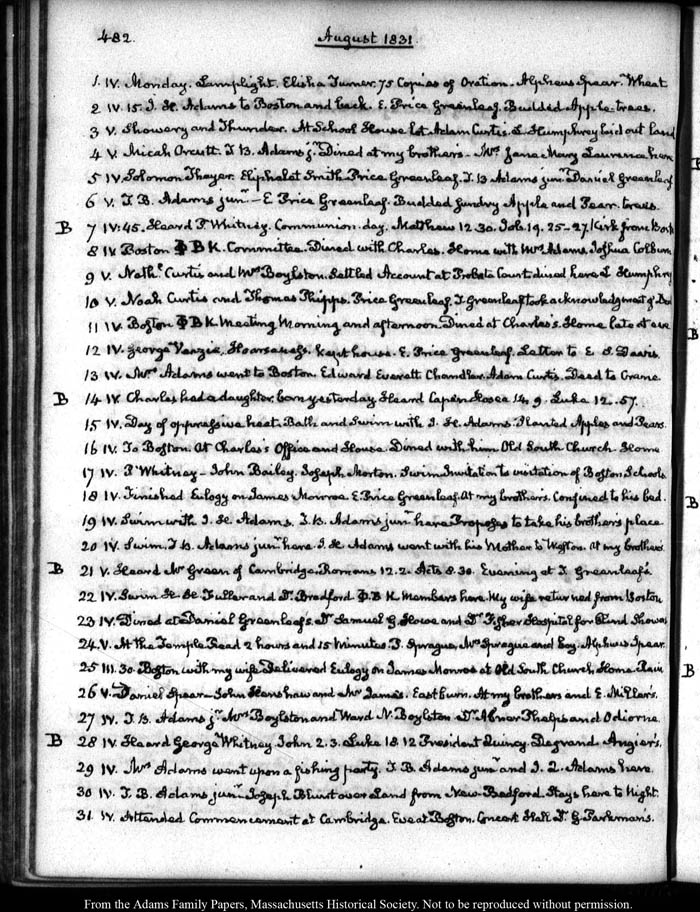 482.
August 1831.
1. IV. Monday. Lamplight. Elisha Turner. 75 Copies of Oration. Alpheus Spear. Wheat
2 IV. 15. I. H. Adams to Boston and back. E. Price Greenleaf. Budded Apple-trees.
3 V. Showery and Thunder. At School House lot Adam Curtis. L. Humphrey laid out land
4 V. Micah Orcutt. T. B. Adams jr. Dined at my brother's. Mrs Jane Mary Laurence here
5 IV. Solomon Thayer. Eliphalet Smith. Price Greenleaf. T. B Adams junr. Daniel Greenleaf
6 V. T. B. Adams junr. - E Price Greenleaf. Budded sundry Apple and Pear trees.
B 7 IV: 45. Heard P. Whitney. Communion day. Matthew 12. 30. Job. 19. 25-27. Kirk from Bost
8 IV. Boston Φ B K. Committee. Dined with Charles. Home with Mrs Adams. Joshua Colburn
9 V. Nathl. Curtis and Mrs Boylston. Settled Account at Probate Court dined here L Humphrey
10 V. Noah Curtis and Thomas Phipps. Price Greenleaf. T Greenleaf took acknowledgment of
11 IV. Boston Φ B K Meeting Morning and afternoon. Dined at Charles's. Home late at eve
12 IV. George Veazie. Hoarseness. kept house. E. Price Greenleaf. Letter to E S. Davis
13 IV. Mrs Adams went to Boston. Edward Everett Chandler. Adam Curtis. Deed to Crane
B 14 IV. Charles had a daughter born yesterday Heard Capen Hosea 14. 9. Luke 12. 57.
15 IV. Day of oppressive heat. Bath and Swim with I. H. Adams. Planted Apples and Pears.
16 IV. To Boston. At Charles's Office and House. Dined with him Old South Church Home
17 IV. P. Whitney - John Bailey. Joseph Morton. Swim Invitation to visitation of Boston Schools
18 IV. Finished Eulogy on James Monroe. E Price Greenleaf. At my brother's. Confined to his bed.
19 IV. Swim with I. H. Adams. T. B. Adams junr. here Proposes to take his brother's place
20 IV. Swim. T. B. Adams junr. here. I. H. Adams went with his Mother to Weston. At my brother's
B 21 V. Heard Mr Green of Cambridge. Romans 12. 2. Acts 8. 30. Evening at T. Greenleaf's
22 IV. Swim H. H. Fuller and G. Bradford Φ B K Members here. My wife returned from Boston
23 IV. Dined at Daniel Greenleaf's. Dr Samuel G. Howe and Dr Fisher Hospital for Blind Showers
24. V. At the Temple. Read 2 hours and 15 Minutes. P. Sprague, Mrs Sprague and boy. Alpheus Spear.
25 III. 30. Boston with my wife Delivered Eulogy on James Monroe at Old South Church. Home. Rain
26 V. Daniel Spear. John Henshaw and Mr James. Eastburn. At my brother's and E. Miller's.
27 IV. T. B. Adams jr. Mrs Boylston and Ward N. Boylston. Dr Abner Phelps and Odiorne.
B 28 IV. Heard George Whitney John 2. 3. Luke 18. 12 President Quincy. Degrand. Angier's.
29 IV. Mrs Adams went upon a fishing party. T. B. Adams junr. and I. Q. Adams here.
30 IV. T. B. Adams junr. Joseph Blunt over Land from New Bedford. Stays here to Night.
31. IV. Attended Commencement at Cambridge. Eve at Boston. Concert Hall Dr G Parkman's.
B
B
B
From the Adams Family Papers, Massachusetts Historical Society. Not to be reproduced without permission.